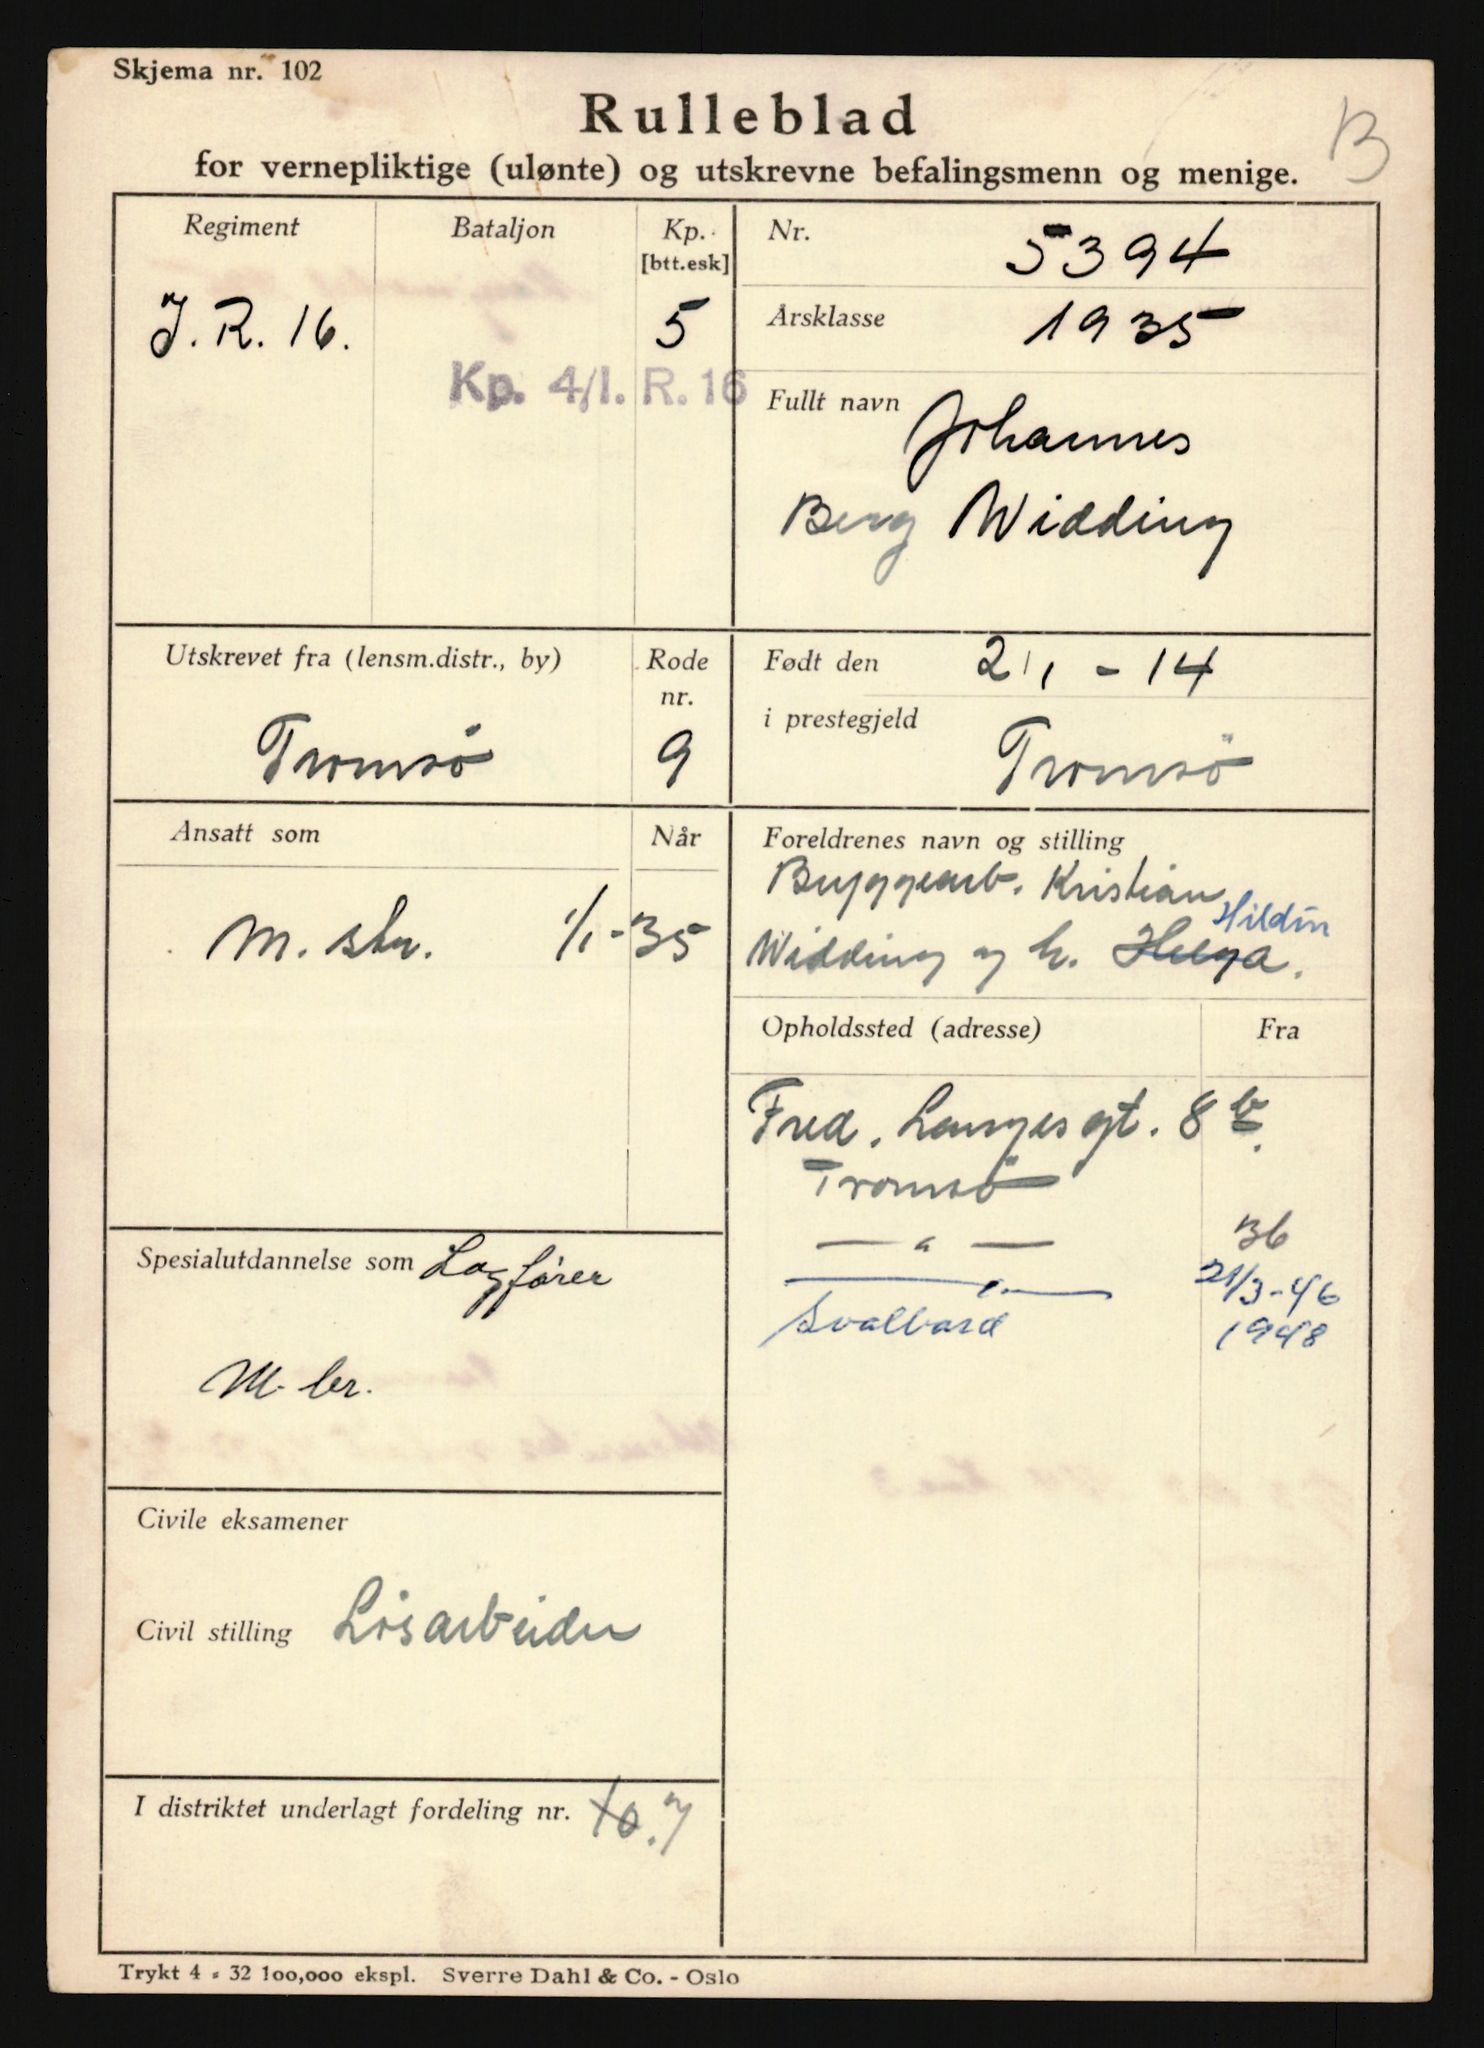 Skjema nr. 102
Rulleblad
B
for vernepliktige (ulønte) og utskrevne befalingsmenn og menige.
Regiment
Bataljon
Kp.
[btt.esk]
J. R. 16.
5
Kp. 4/I. R. 16
Nr.
5394
Årsklasse
1935
Fullt navn
Johannes
Berg Widding
Utskrevet fra (lensm.distr., by)
Rode
nr.
Tromsö
9
Født den
2/1 - 14
i prestegjeld
Tromsö
Ansatt som
Når
M. str.
1/1-35
Foreldrenes navn og stilling
Bryggearb. Kristian
Hildin
Widding og h. Helga.
Opholdssted (adresse)
Fra
Fred. Langes gt. 8 b.
Tromsö
— " —
36
— " —
21/3-46
Svalbard
1948
Spesialutdannelse som Lagfører
M. br.
Civile eksamener
Civil stilling Lösarbeider
I distriktet underlagt fordeling nr. 10. 7
Trykt 4 - 32 100,000 ekspl. Sverre Dahl & Co. - Oslo